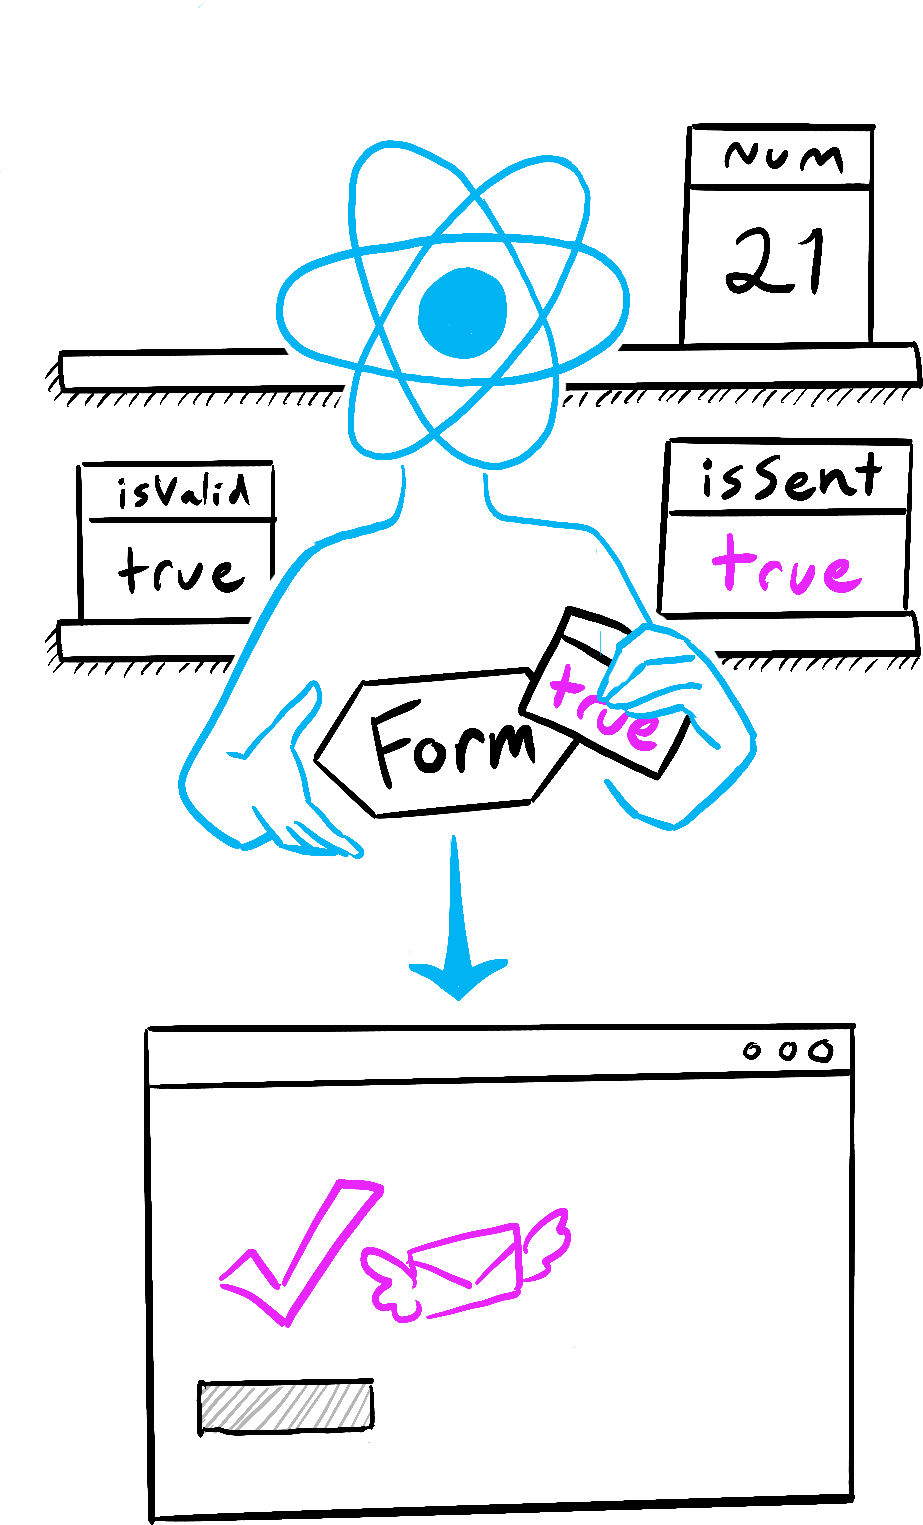 Num
21
isValid
true
isSent
true
Form
true